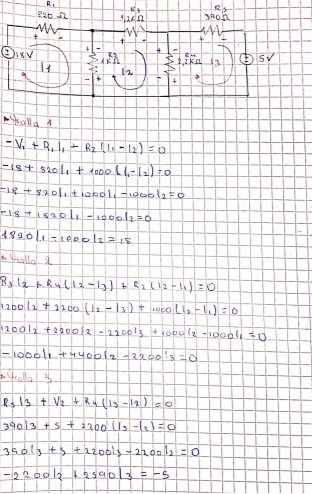 R1 R3 R5
820 Ω 1,2KΩ 390Ω
+ - + - + -
18V I1 R2 1KΩ I2 R4 2,2KΩ I3 5V
Malla 1
-V1 + R1 I1 + R2 (I1 - I2) = 0
-18 + 820I1 + 1000 (I1 - I2) = 0
-18 + 820I1 + 1000I1 - 1000I2 = 0
-18 + 1820I1 - 1000I2 = 0
1820I1 - 1000I2 = 18
Malla 2
R3 I2 + R4 (I2 - I3) + R2 (I2 - I1) = 0
1200I2 + 2200 (I2 - I3) + 1000 (I2 - I1) = 0
1200I2 + 2200I2 - 2200I3 + 1000I2 - 1000I1 = 0
-1000I1 + 4400I2 - 2200I3 = 0
Malla 3
R5 I3 + V2 + R4 (I3 - I2) = 0
390I3 + 5 + 2200 (I3 - I2) = 0
390I3 + 5 + 2200I3 - 2200I2 = 0
-2200I2 + 2590I3 = -5